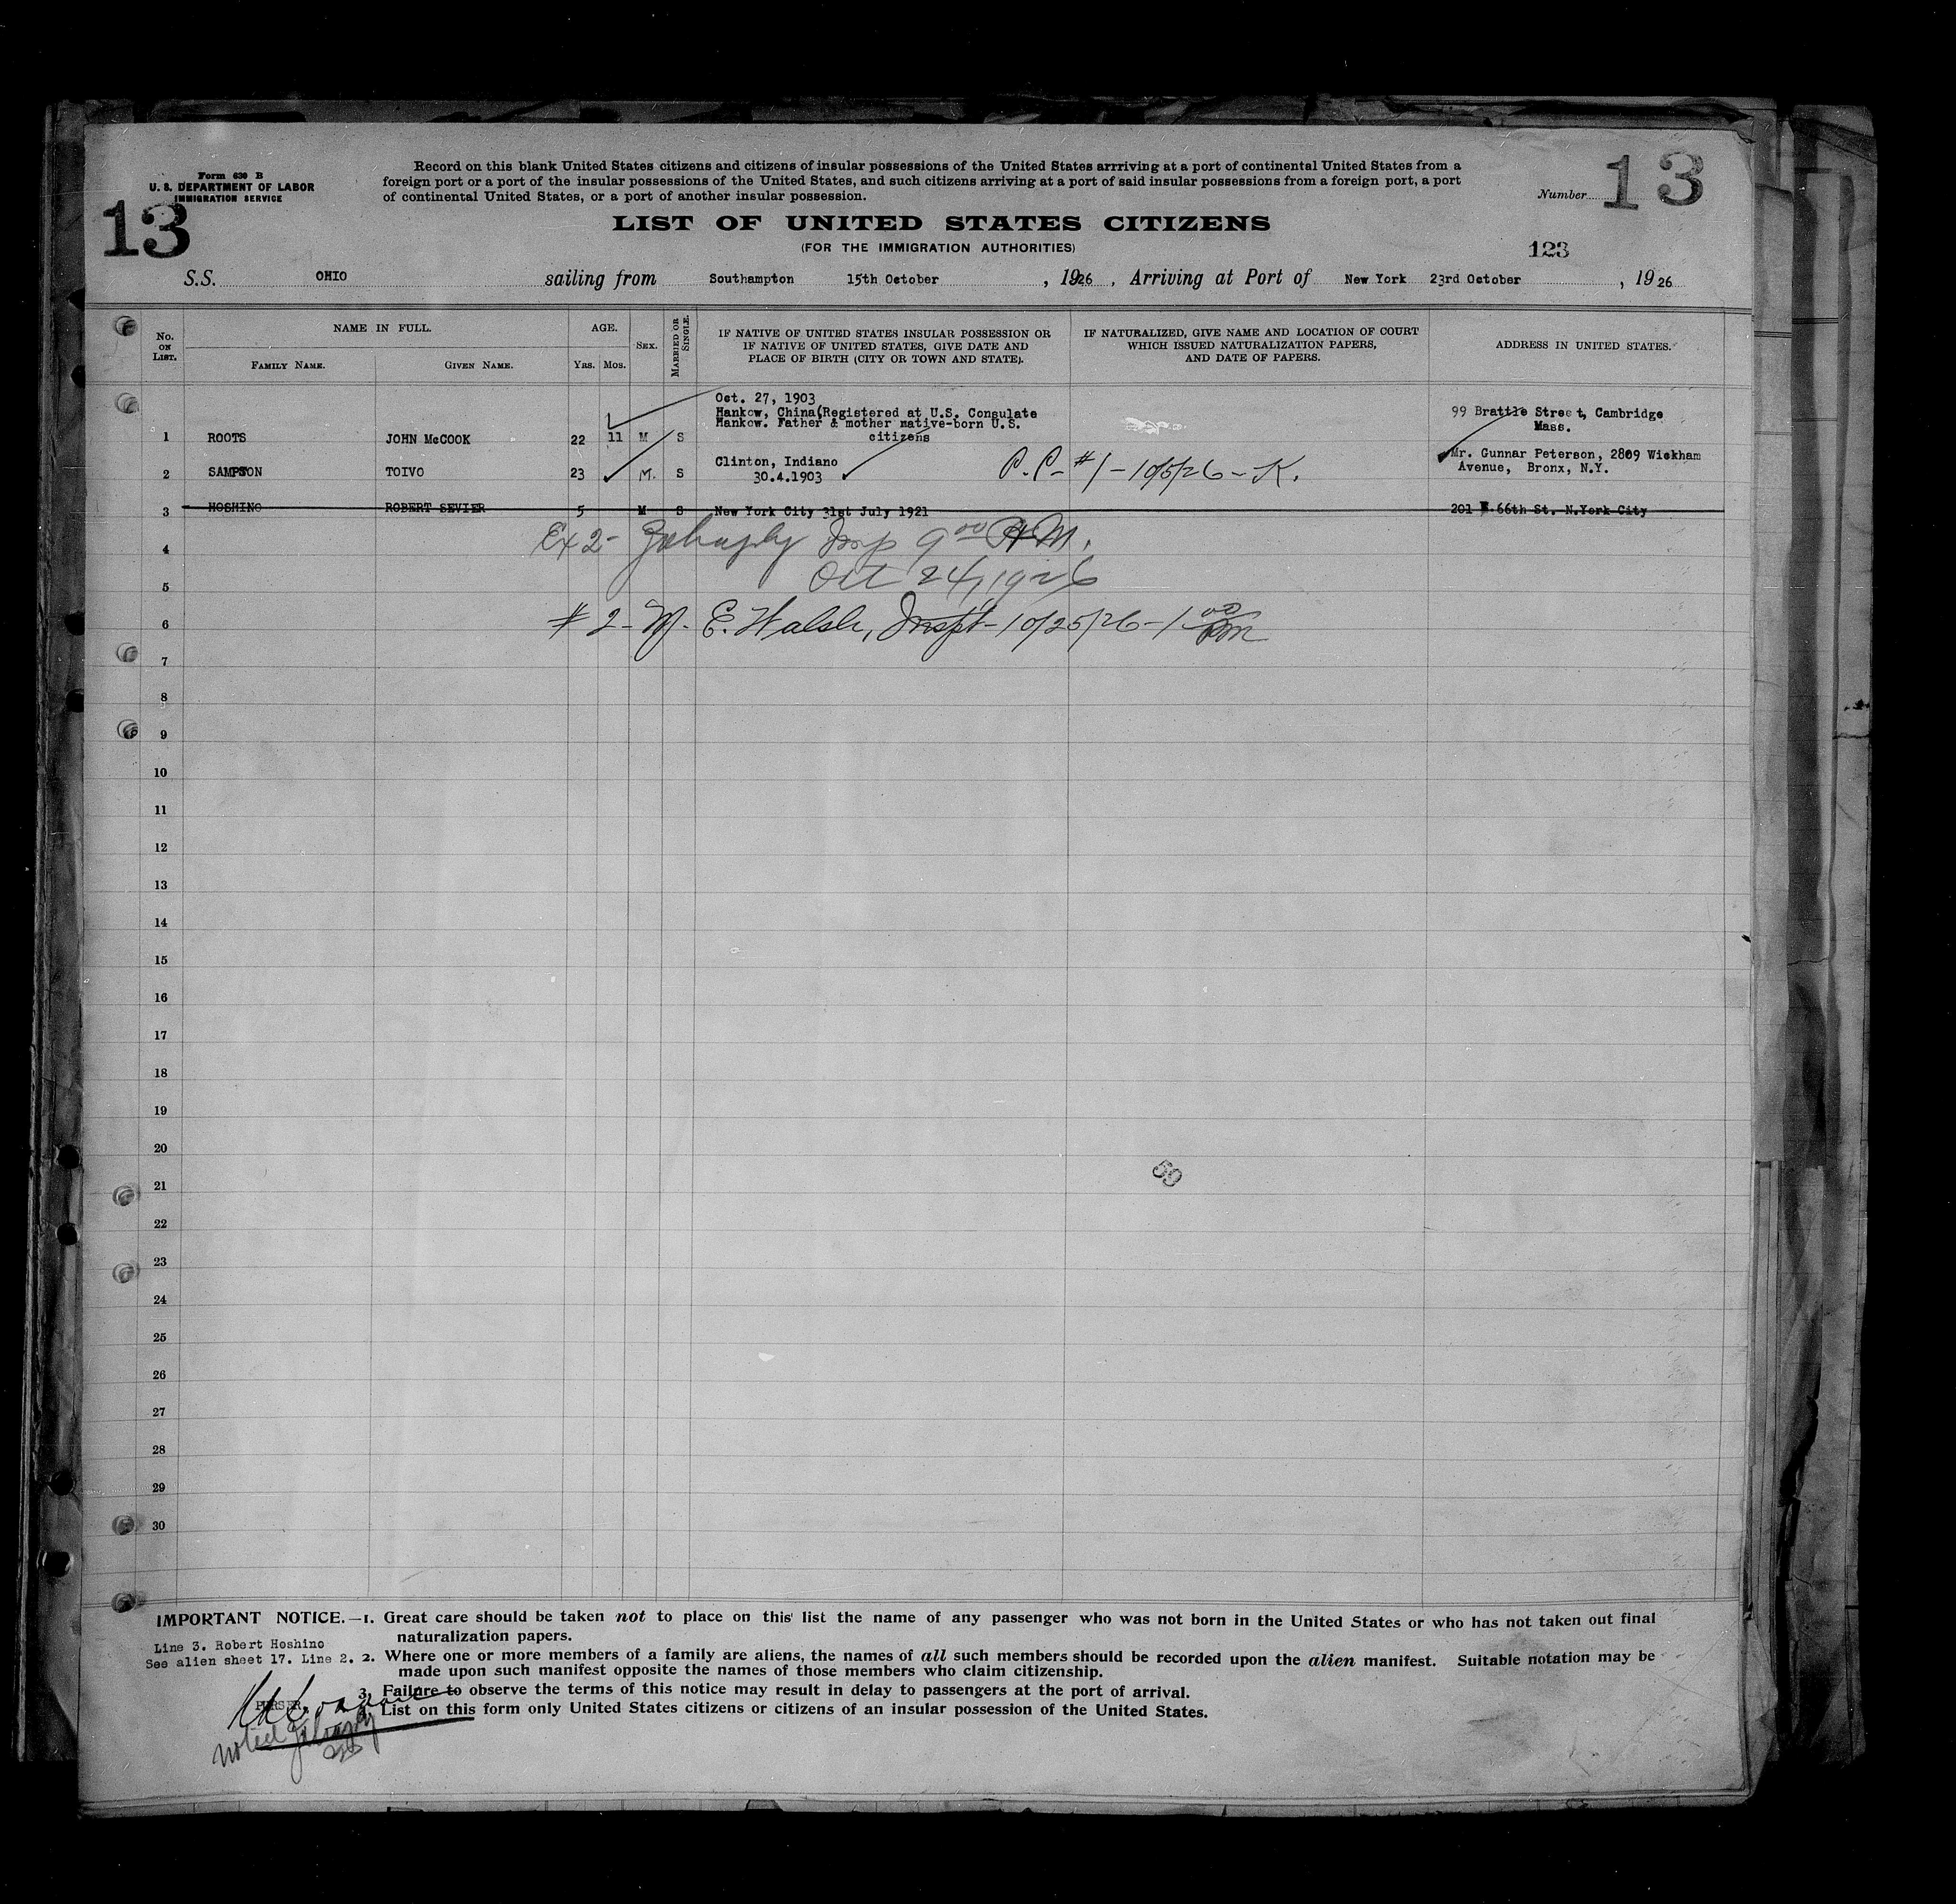 Form 630 B
U. S. DEPARTMENT OF LABOR
IMMIGRATION SERVICE
13
Record on this blank United States citizens and citizens of insular possessions of the United States arrriving at a port of continental United States from a
foreign port or a port of the insular possessions of the United States, and such citizens arriving at a port of said insular possessions from a foreign port, a port
of continental United States, or a port of another insular possession.
Number 13
LIST OF UNITED STATES CITIZENS
(FOR THE IMMIGRATION AUTHORITIES)
123
S.S. OHIO sailing from Southampton 15th October , 1926 , Arriving at Port of New York 23rd October , 1926
No. ON LIST.
NAME IN FULL.
FAMILY NAME.
GIVEN NAME.
AGE.
Yrs.
Mos.
SEX.
MARRIED OR SINGLE.
IF NATIVE OF UNITED STATES INSULAR POSSESSION OR
IF NATIVE OF UNITED STATES, GIVE DATE AND
PLACE OF BIRTH (CITY OR TOWN AND STATE).
IF NATURALIZED, GIVE NAME AND LOCATION OF COURT
WHICH ISSUED NATURALIZATION PAPERS,
AND DATE OF PAPERS.
ADDRESS IN UNITED STATES.
1 ROOTS JOHN McCOOK 22 11 M S
Oct. 27, 1903
Hankow, China(Registered at U.S. Consulate
Hankow. Father & mother native-born U.S.
citizens
99 Brattle Street, Cambridge
Mass.
2 SAMPSON TOIVO 23 M. S
Clinton, Indiano
30.4.1903
P.C- #1-10/5/26-K.
Mr. Gunnar Peterson, 2809 Wickham
Avenue, Bronx, N.Y.
3 HOSHINO ROBERT SEVIER 5 M S New York City 31st July 1921 201 66th St. N.York City
Ex 2- Insp 9 00 AM.
4
Oct 24, 1926
5
6 #2-M. E. Walsh, Inspt-10/25/26-1 00 PM
7
8
9
10
11
12
13
14
15
16
17
18
19
20
59
21
22
23
24
25
26
27
28
29
30
IMPORTANT NOTICE.—1. Great care should be taken not to place on this list the name of any passenger who was not born in the United States or who has not taken out final
naturalization papers.
Line 3. Robert Hoshino
See alien sheet 17. Line 2.
2. Where one or more members of a family are aliens, the names of all such members should be recorded upon the alien manifest. Suitable notation may be
made upon such manifest opposite the names of those members who claim citizenship.
3. Failure to observe the terms of this notice may result in delay to passengers at the port of arrival.
PURSER.
List on this form only United States citizens or citizens of an insular possession of the United States.
Noted